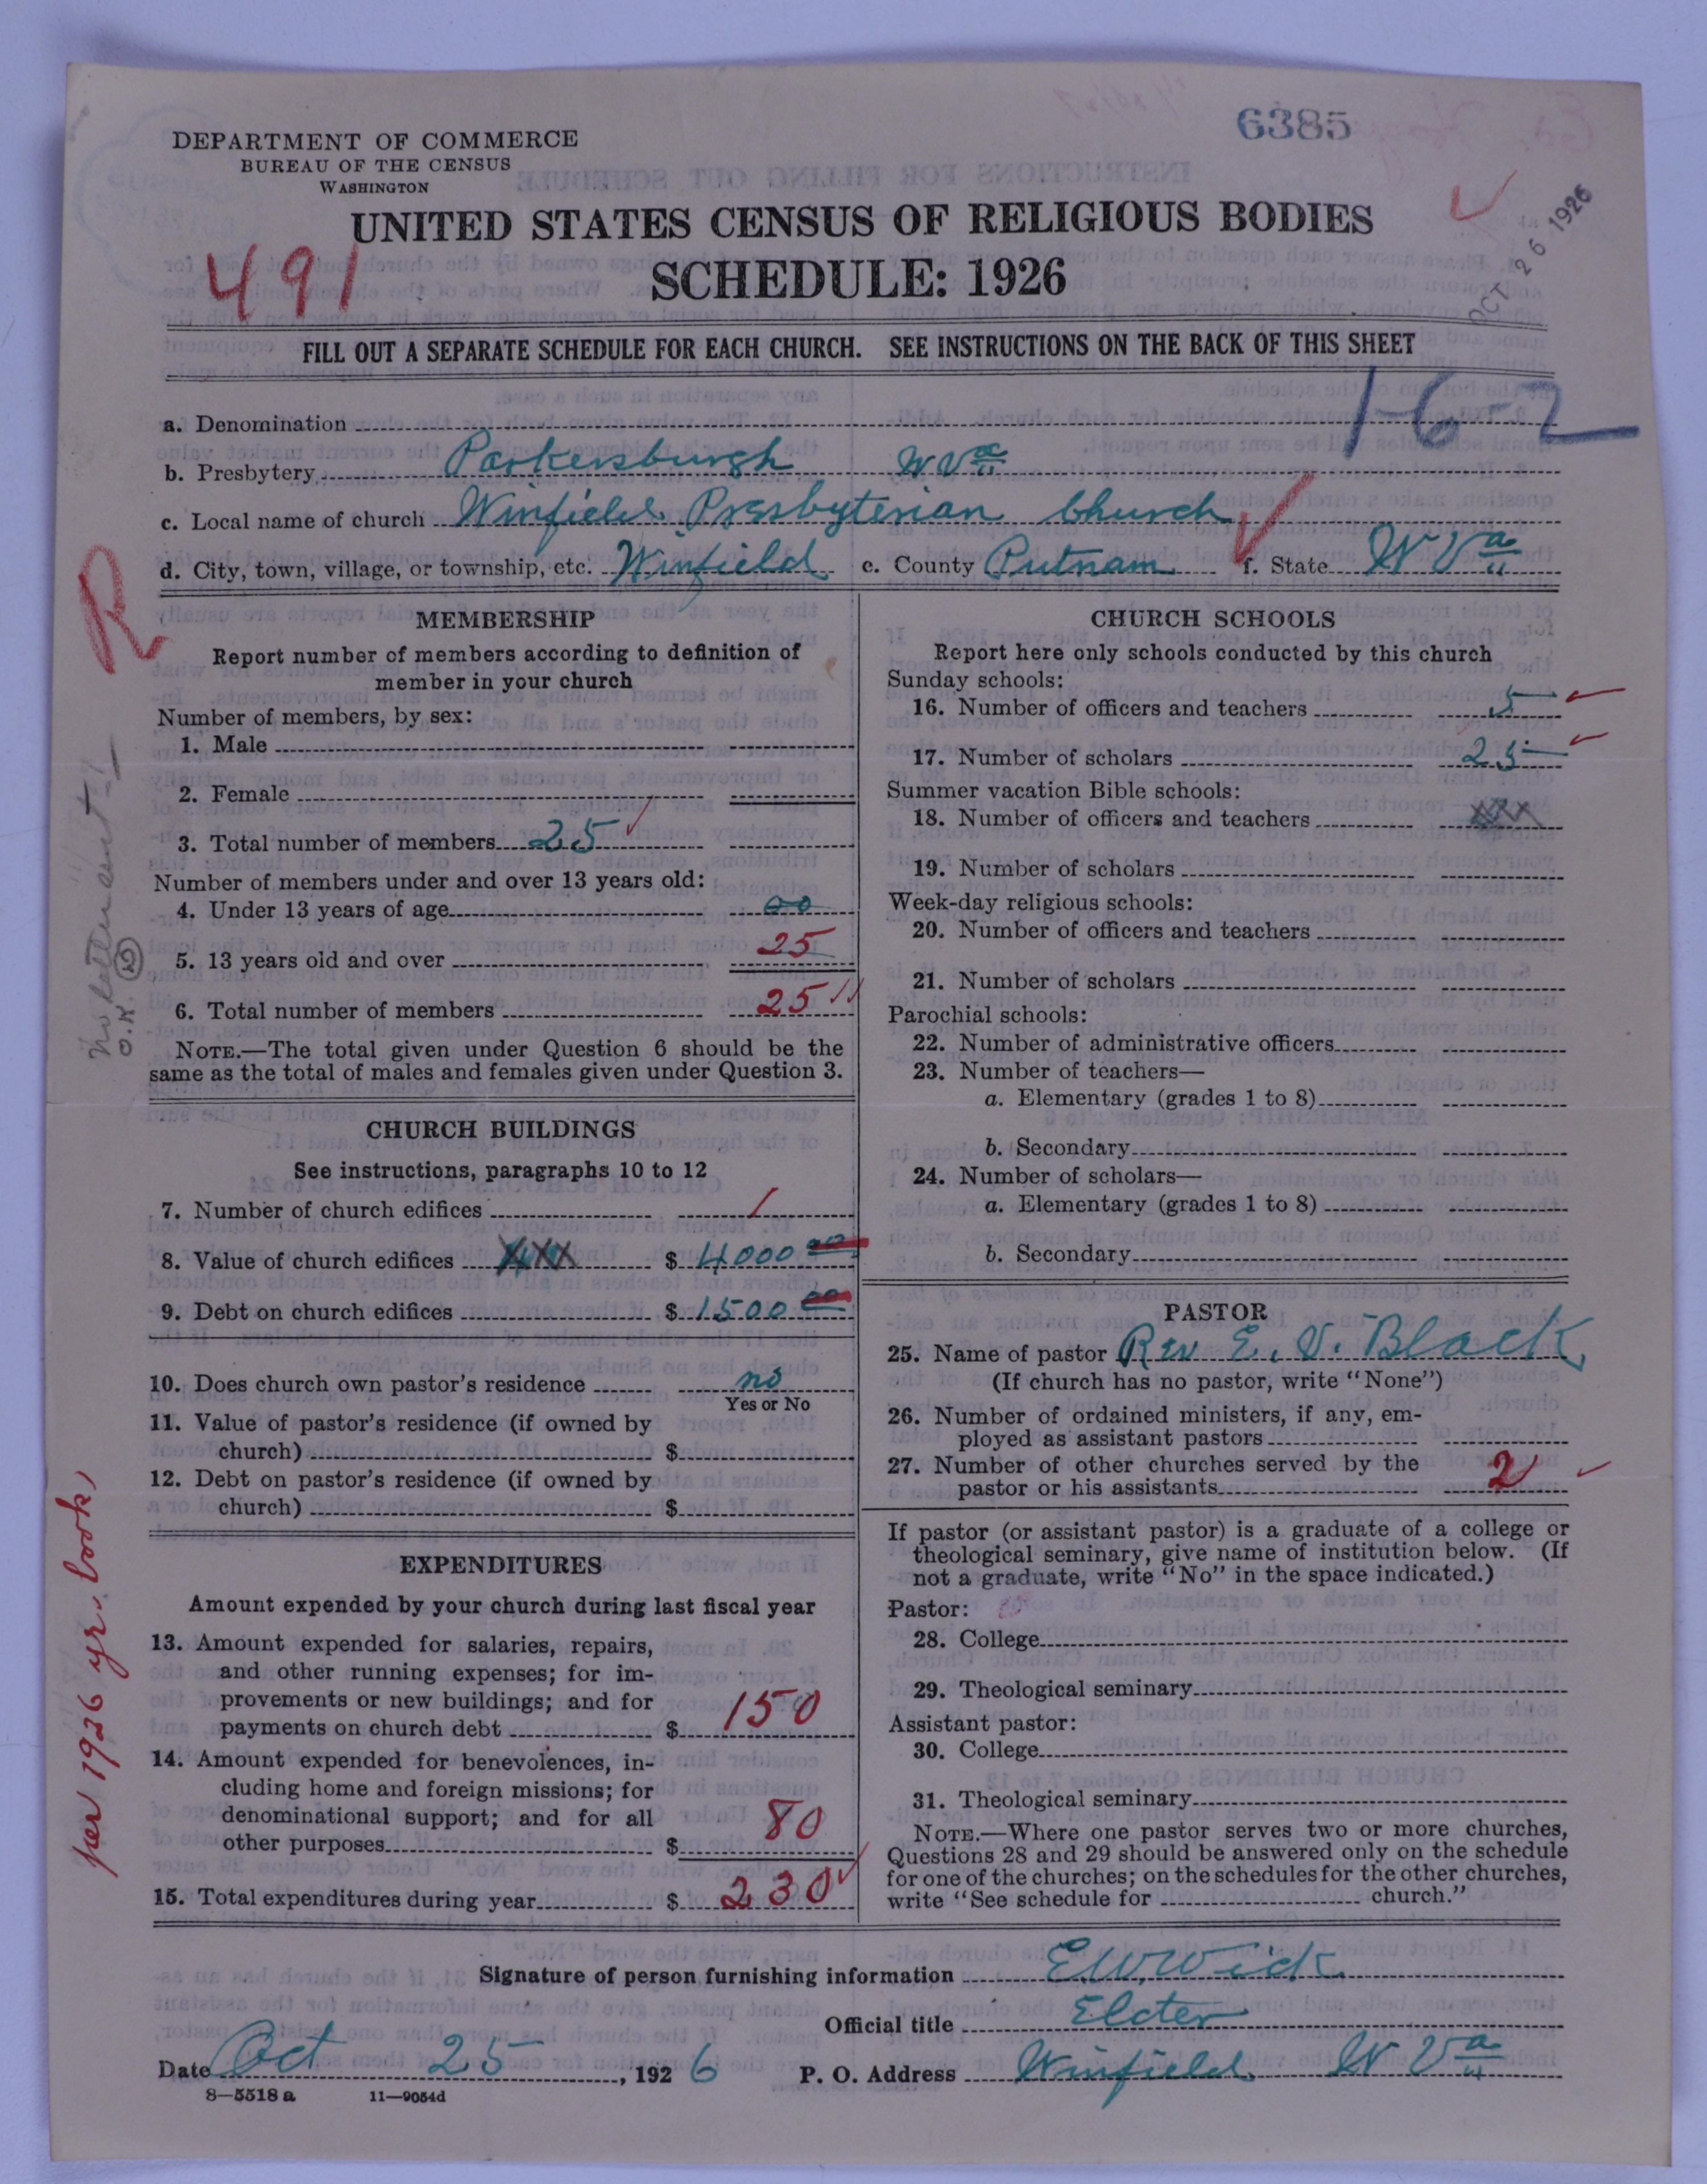 6385
DEPARTMENT OF COMMERCE
BUREAU OF THE CENSUS
WASHINGTON
UNITED STATES CENSUS OF RELIGIOUS BODIES
SCHEDULE: 1926
491
OCT 26 1926
FILL OUT A SEPARATE SCHEDULE FOR EACH CHURCH. SEE INSTRUCTIONS ON THE BACK OF THIS SHEET
1-6-2
a. Denomination
b. Presbytery Parkersburgh W Va
c. Local name of church Winfield Presbyterian Church
d. City, town, village, or township, etc. Winfield e. County Putnam f. State W Va
R
MEMBERSHIP
Report number of members according to definition of
member in your church
Number of members, by sex:
1. Male
2. Female
3. Total number of members 25
Number of members under and over 13 years old:
4. Under 13 years of age 00
5. 13 years old and over 25
6. Total number of members 25
NOTE.—The total given under Question 6 should be the
same as the total of males and females given under Question 3.
no letter sent
O.K.
CHURCH BUILDINGS
See instructions, paragraphs 10 to 12
7. Number of church edifices 1
8. Value of church edifices $ 4000 00
9. Debt on church edifices $ 1500 00
10. Does church own pastor's residence no
Yes or No
11. Value of pastor's residence (if owned by
church) $
12. Debt on pastor's residence (if owned by
church) $
EXPENDITURES
Amount expended by your church during last fiscal year
13. Amount expended for salaries, repairs,
and other running expenses; for im-
provements or new buildings; and for
payments on church debt $ 150
14. Amount expended for benevolences, in-
cluding home and foreign missions; for
denominational support; and for all
other purposes $ 80
15. Total expenditures during year $ 230
per 1926 yr. book
CHURCH SCHOOLS
Report here only schools conducted by this church
Sunday schools:
16. Number of officers and teachers 5
17. Number of scholars 25
Summer vacation Bible schools:
18. Number of officers and teachers
19. Number of scholars
Week-day religious schools:
20. Number of officers and teachers
21. Number of scholars
Parochial schools:
22. Number of administrative officers
23. Number of teachers—
a. Elementary (grades 1 to 8)
b. Secondary
24. Number of scholars—
a. Elementary (grades 1 to 8)
b. Secondary
PASTOR
25. Name of pastor Rev E. V. Black
(If church has no pastor, write "None")
26. Number of ordained ministers, if any, em-
ployed as assistant pastors
27. Number of other churches served by the
pastor or his assistants 2
If pastor (or assistant pastor) is a graduate of a college or
theological seminary, give name of institution below. (If
not a graduate, write "No" in the space indicated.)
Pastor:
28. College
29. Theological seminary
Assistant pastor:
30. College
31. Theological seminary
NOTE.—Where one pastor serves two or more churches,
Questions 28 and 29 should be answered only on the schedule
for one of the churches; on the schedules for the other churches,
write "See schedule for church."
Signature of person furnishing information E W Wick
Official title Elder
Date Oct 25, 1926 P. O. Address Winfield W Va
8—5518 a 11—9054d